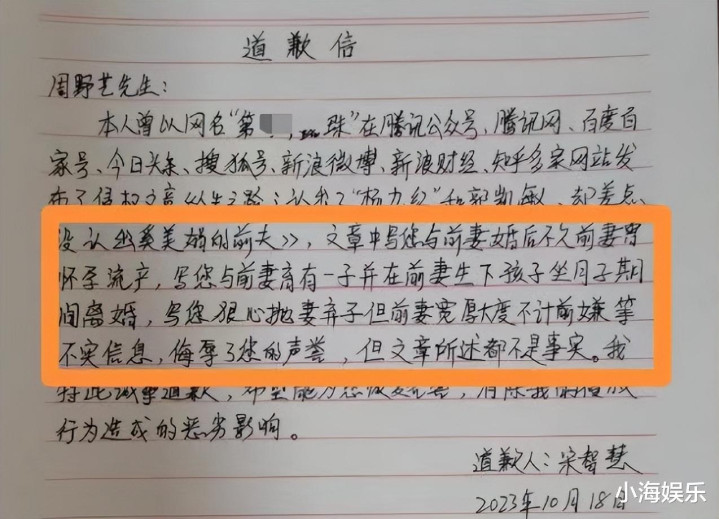 道歉信
周野芒先生：
本人曾以网名“第 珠”在腾讯公众号、腾讯网、百度百
家号、今日头条、搜狐号、新浪微博、新浪财经、知乎多家网站发
布了侵权文章《 却差点
没认出奚美娟的前夫》，文章中写您与前妻婚后不久前妻曾
怀孕流产，写您与前妻育有一子并在前妻生下孩子坐月子期
间离婚，写您狠心抛妻弃子但前妻宽厚大度不计前嫌等
不实信息，侮辱了您的声誉，但文章所述都不是事实。我
特此诚挚道歉，希望能为您恢复名誉，消除我的侵权
行为造成的恶劣影响。
道歉人：宋智慧
2023年10月18日
小海娱乐